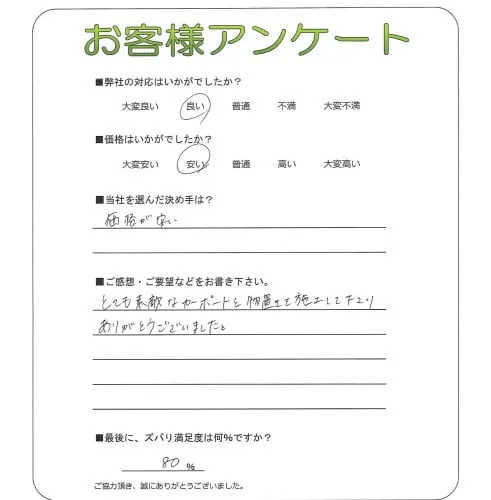 お客様アンケート
■弊社の対応はいかがでしたか？
大変良い 良い 普通 不満 大変不満
■価格はいかがでしたか？
大変安い 安い 普通 高い 大変高い
■当社を選んだ決め手は？
価格が安い
■ご感想・ご要望などをお書き下さい。
とても素敵なカーポートと物置まで施工して下さり
ありがとうございました。
■最後に、ズバリ満足度は何%ですか？
80 %
ご協力頂き、誠にありがとうございました。